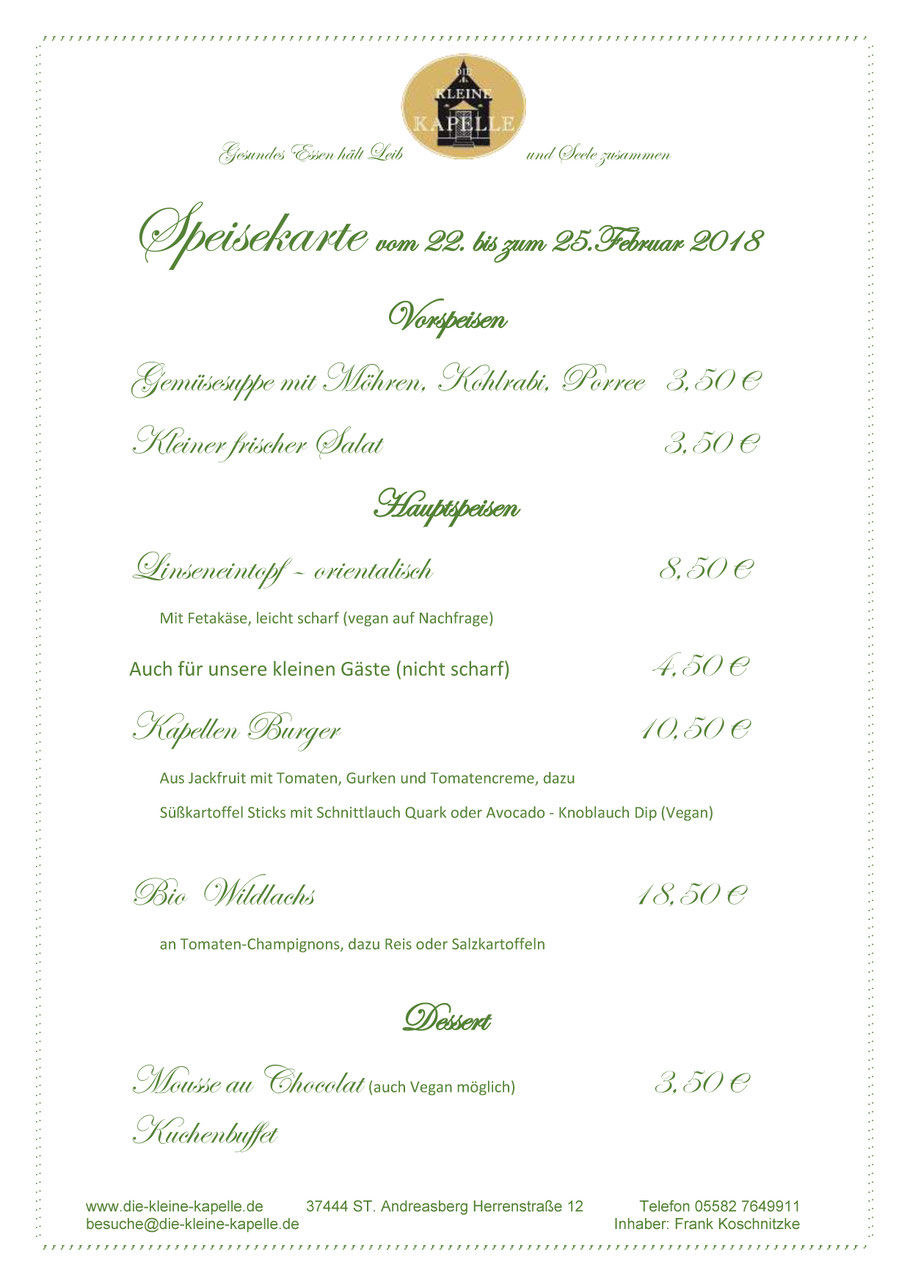 DIE
KLEINE
KAPELLE
Gesundes Essen hält Leib und Seele zusammen
Speisekarte vom 22. bis zum 25.Februar 2018
Vorspeisen
Gemüsesuppe mit Möhren, Kohlrabi, Porree 3,50 €
Kleiner frischer Salat 3,50 €
Hauptspeisen
Linseneintopf – orientalisch 8,50 €
Mit Fetakäse, leicht scharf (vegan auf Nachfrage)
Auch für unsere kleinen Gäste (nicht scharf) 4,50 €
Kapellen Burger 10,50 €
Aus Jackfruit mit Tomaten, Gurken und Tomatencreme, dazu
Süßkartoffel Sticks mit Schnittlauch Quark oder Avocado - Knoblauch Dip (Vegan)
Bio Wildlachs 18,50 €
an Tomaten-Champignons, dazu Reis oder Salzkartoffeln
Dessert
Mousse au Chocolat (auch Vegan möglich) 3,50 €
Kuchenbuffet
www.die-kleine-kapelle.de 37444 ST. Andreasberg Herrenstraße 12 Telefon 05582 7649911
besuche@die-kleine-kapelle.de Inhaber: Frank Koschnitzke